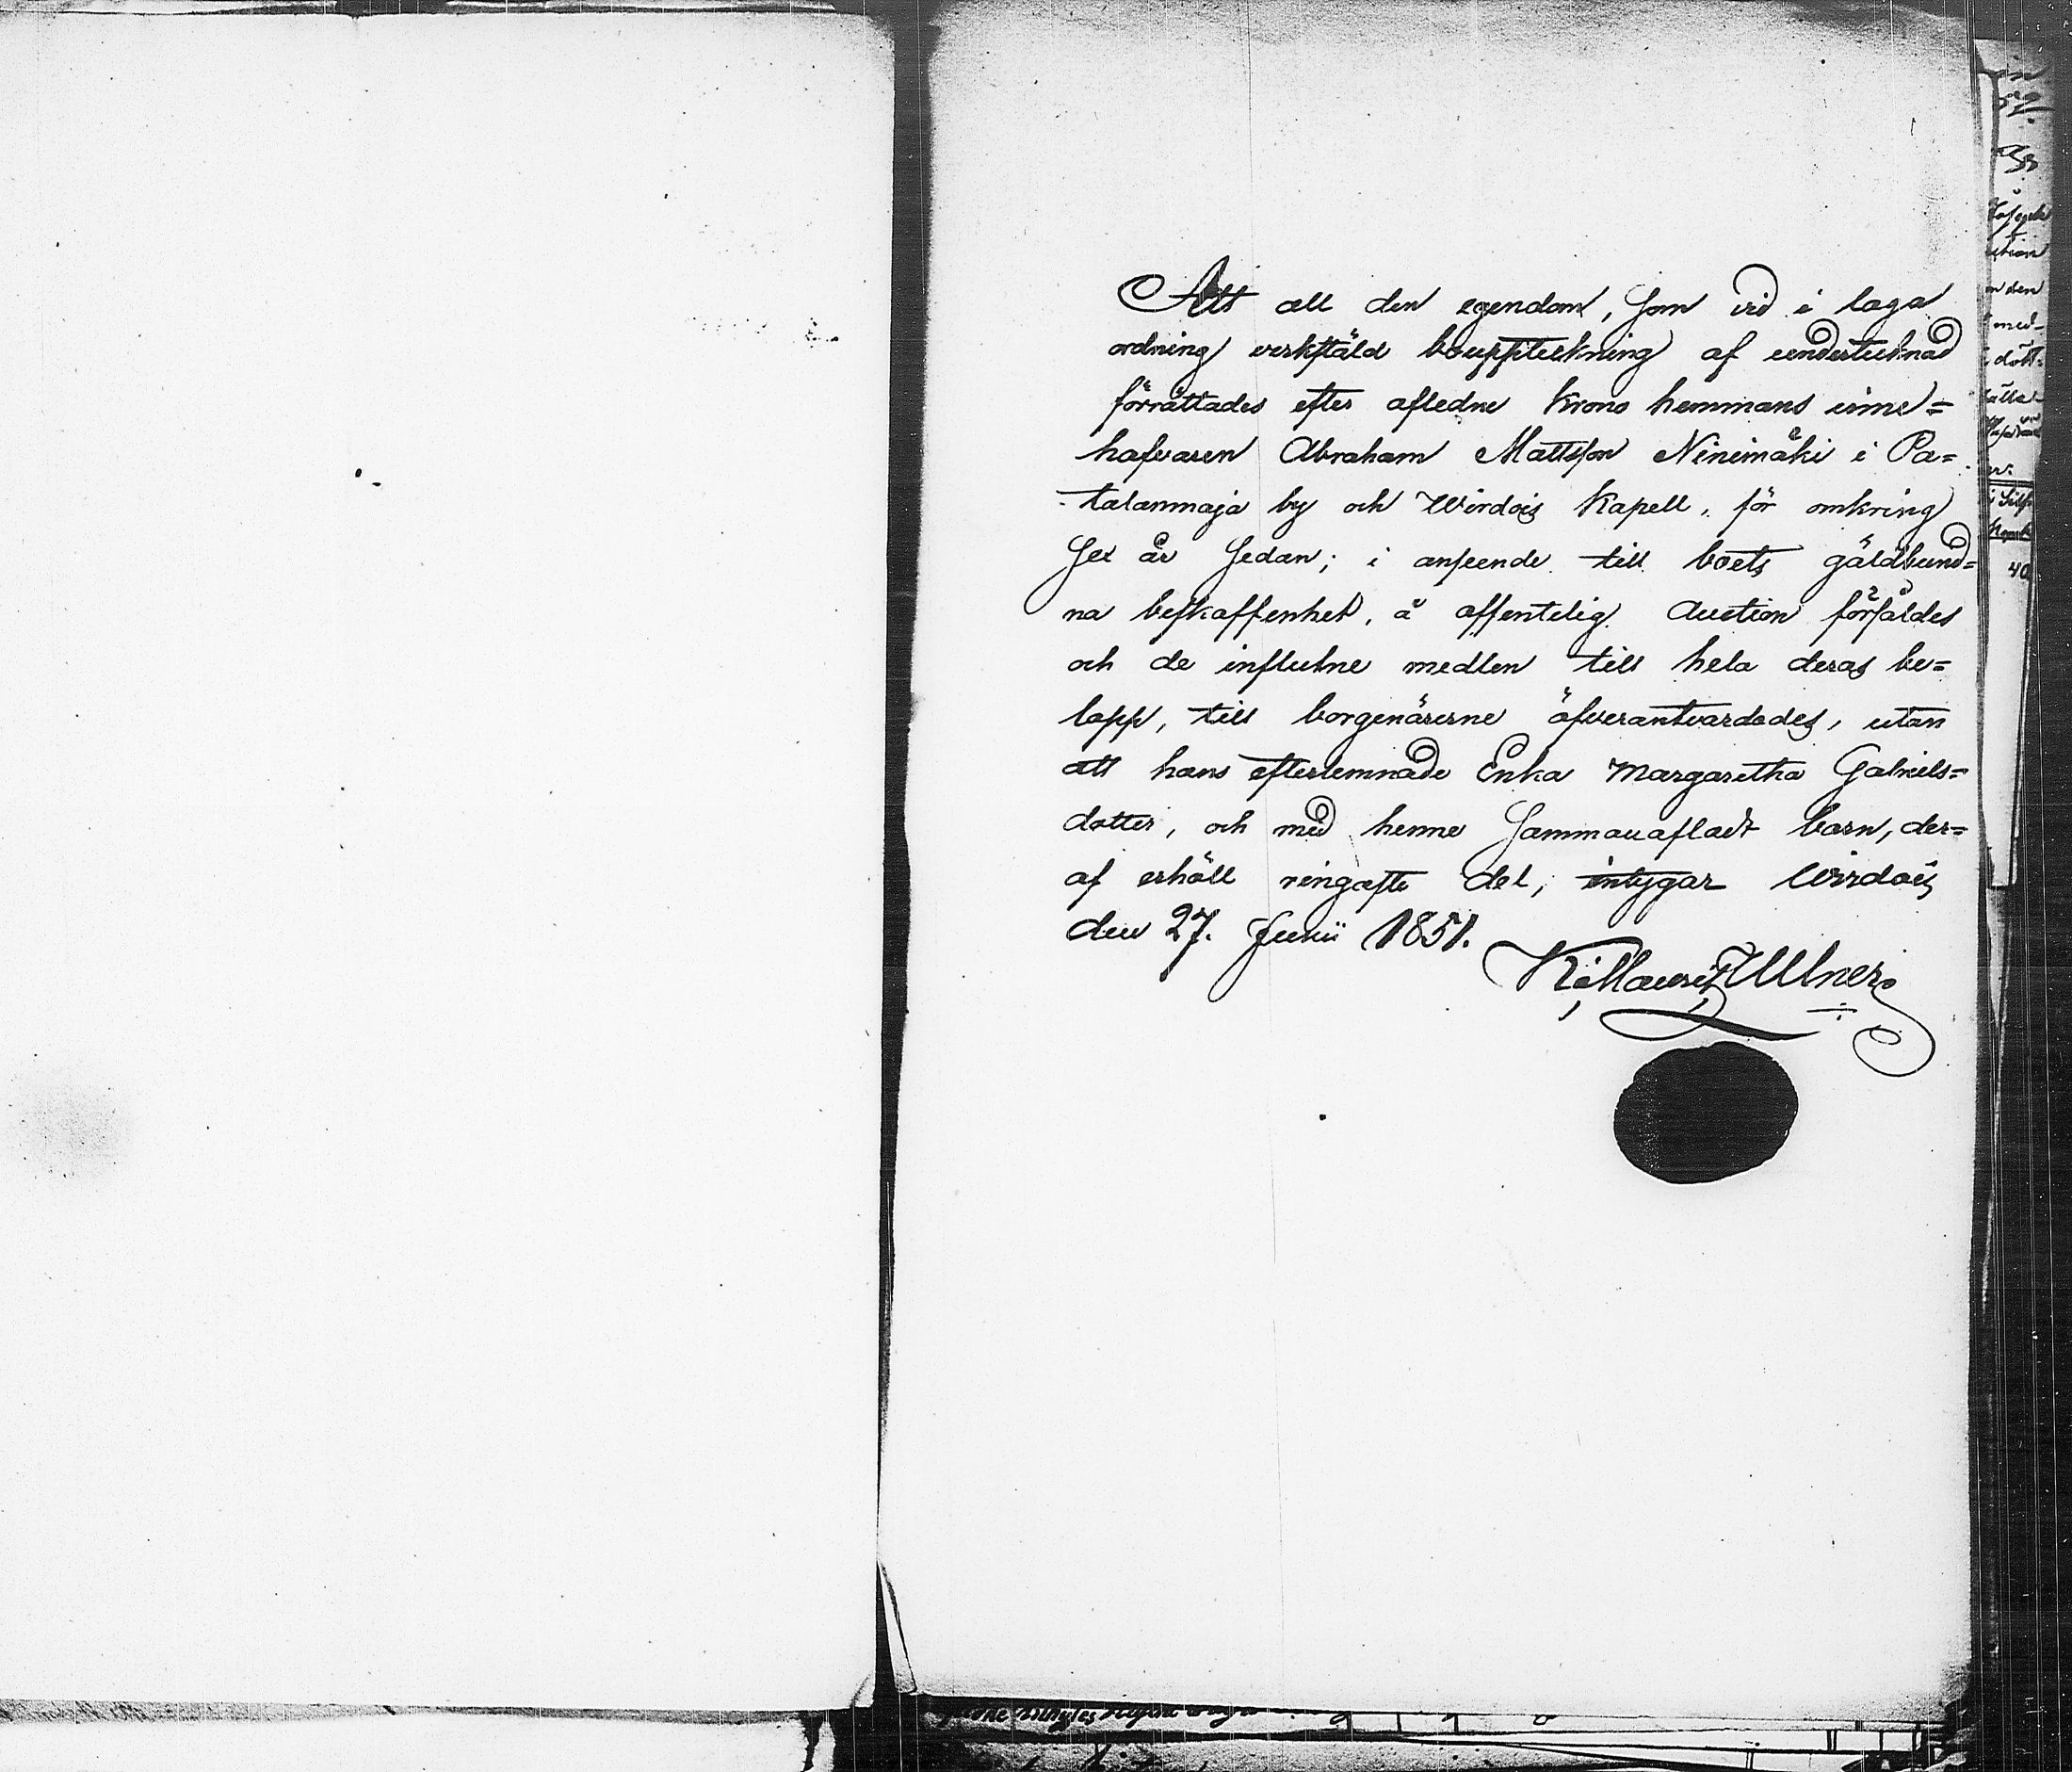 Att all den egendom, som vid i laga
ordning verkstäld bouppteckning af undertecknad
förrättades efter afledne Krono hemmans inne=
hafvaren Abraham Mattsson Ninimäki i Pa=
talanmaja by och Wirdois Kapell, för omkring
Sex år Sedan; i anseende till boets gäldbund=
na beskaffenhet, å offentelig Auction försåldes
och de influtne medlen till hela deras be=
lopp, till borgenärerne öfverantvardades, utan
att hans efterlemnade Enka Margaretha Gabriels=
dotter, och med henne Sammanaflade barn, der=
af erhöll ringaste del, intygar Wirdois
den 27. Junii 1851.